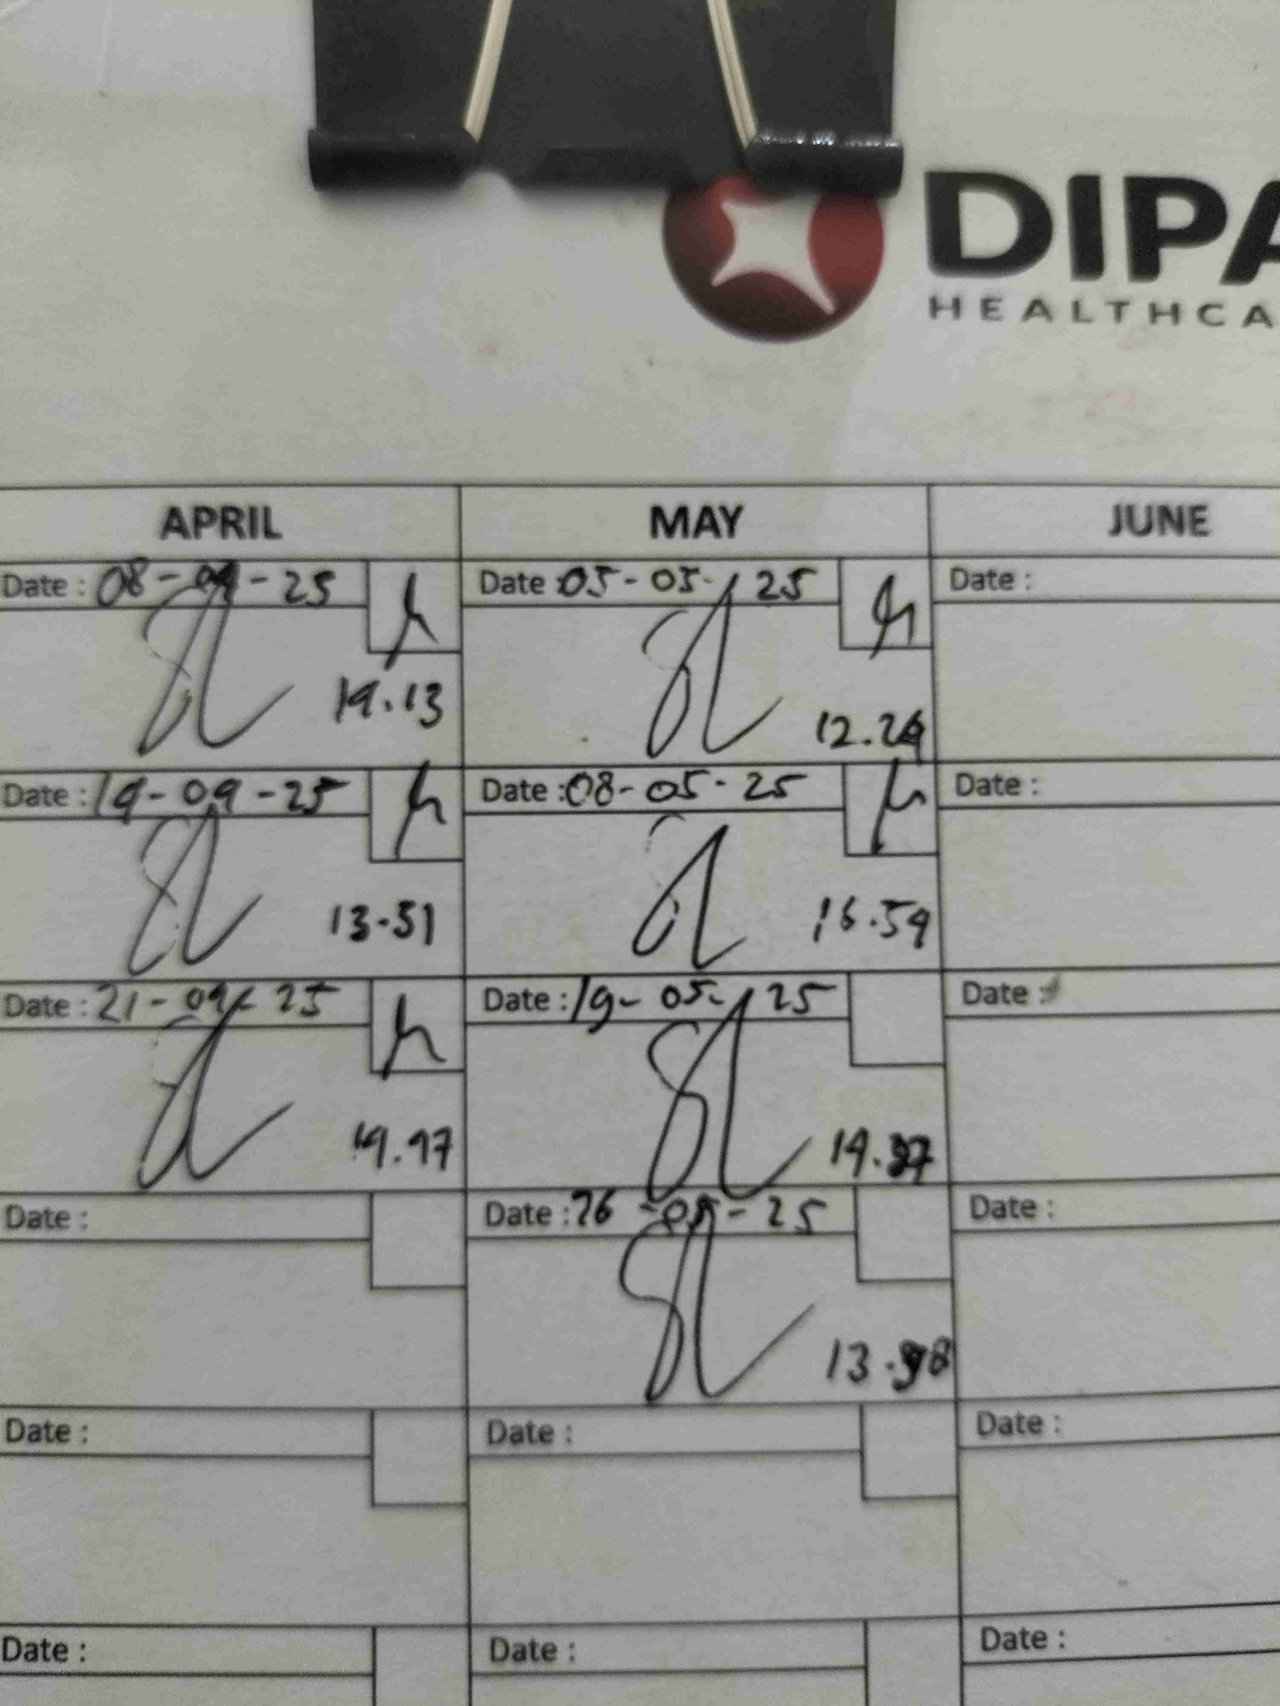 DIPA
HEALTHCA
APRIL MAY JUNE
Date : 08-04-25 Date : 05-05-25 Date :
14.13 12.24
Date : 14-04-25 Date : 08-05-25 Date :
13.51 16.54
Date : 21-04-25 Date : 19-05-25 Date :
14.47 14.37
Date : Date : 26-05-25 Date :
13.
Date : Date : Date :
Date : Date : Date :